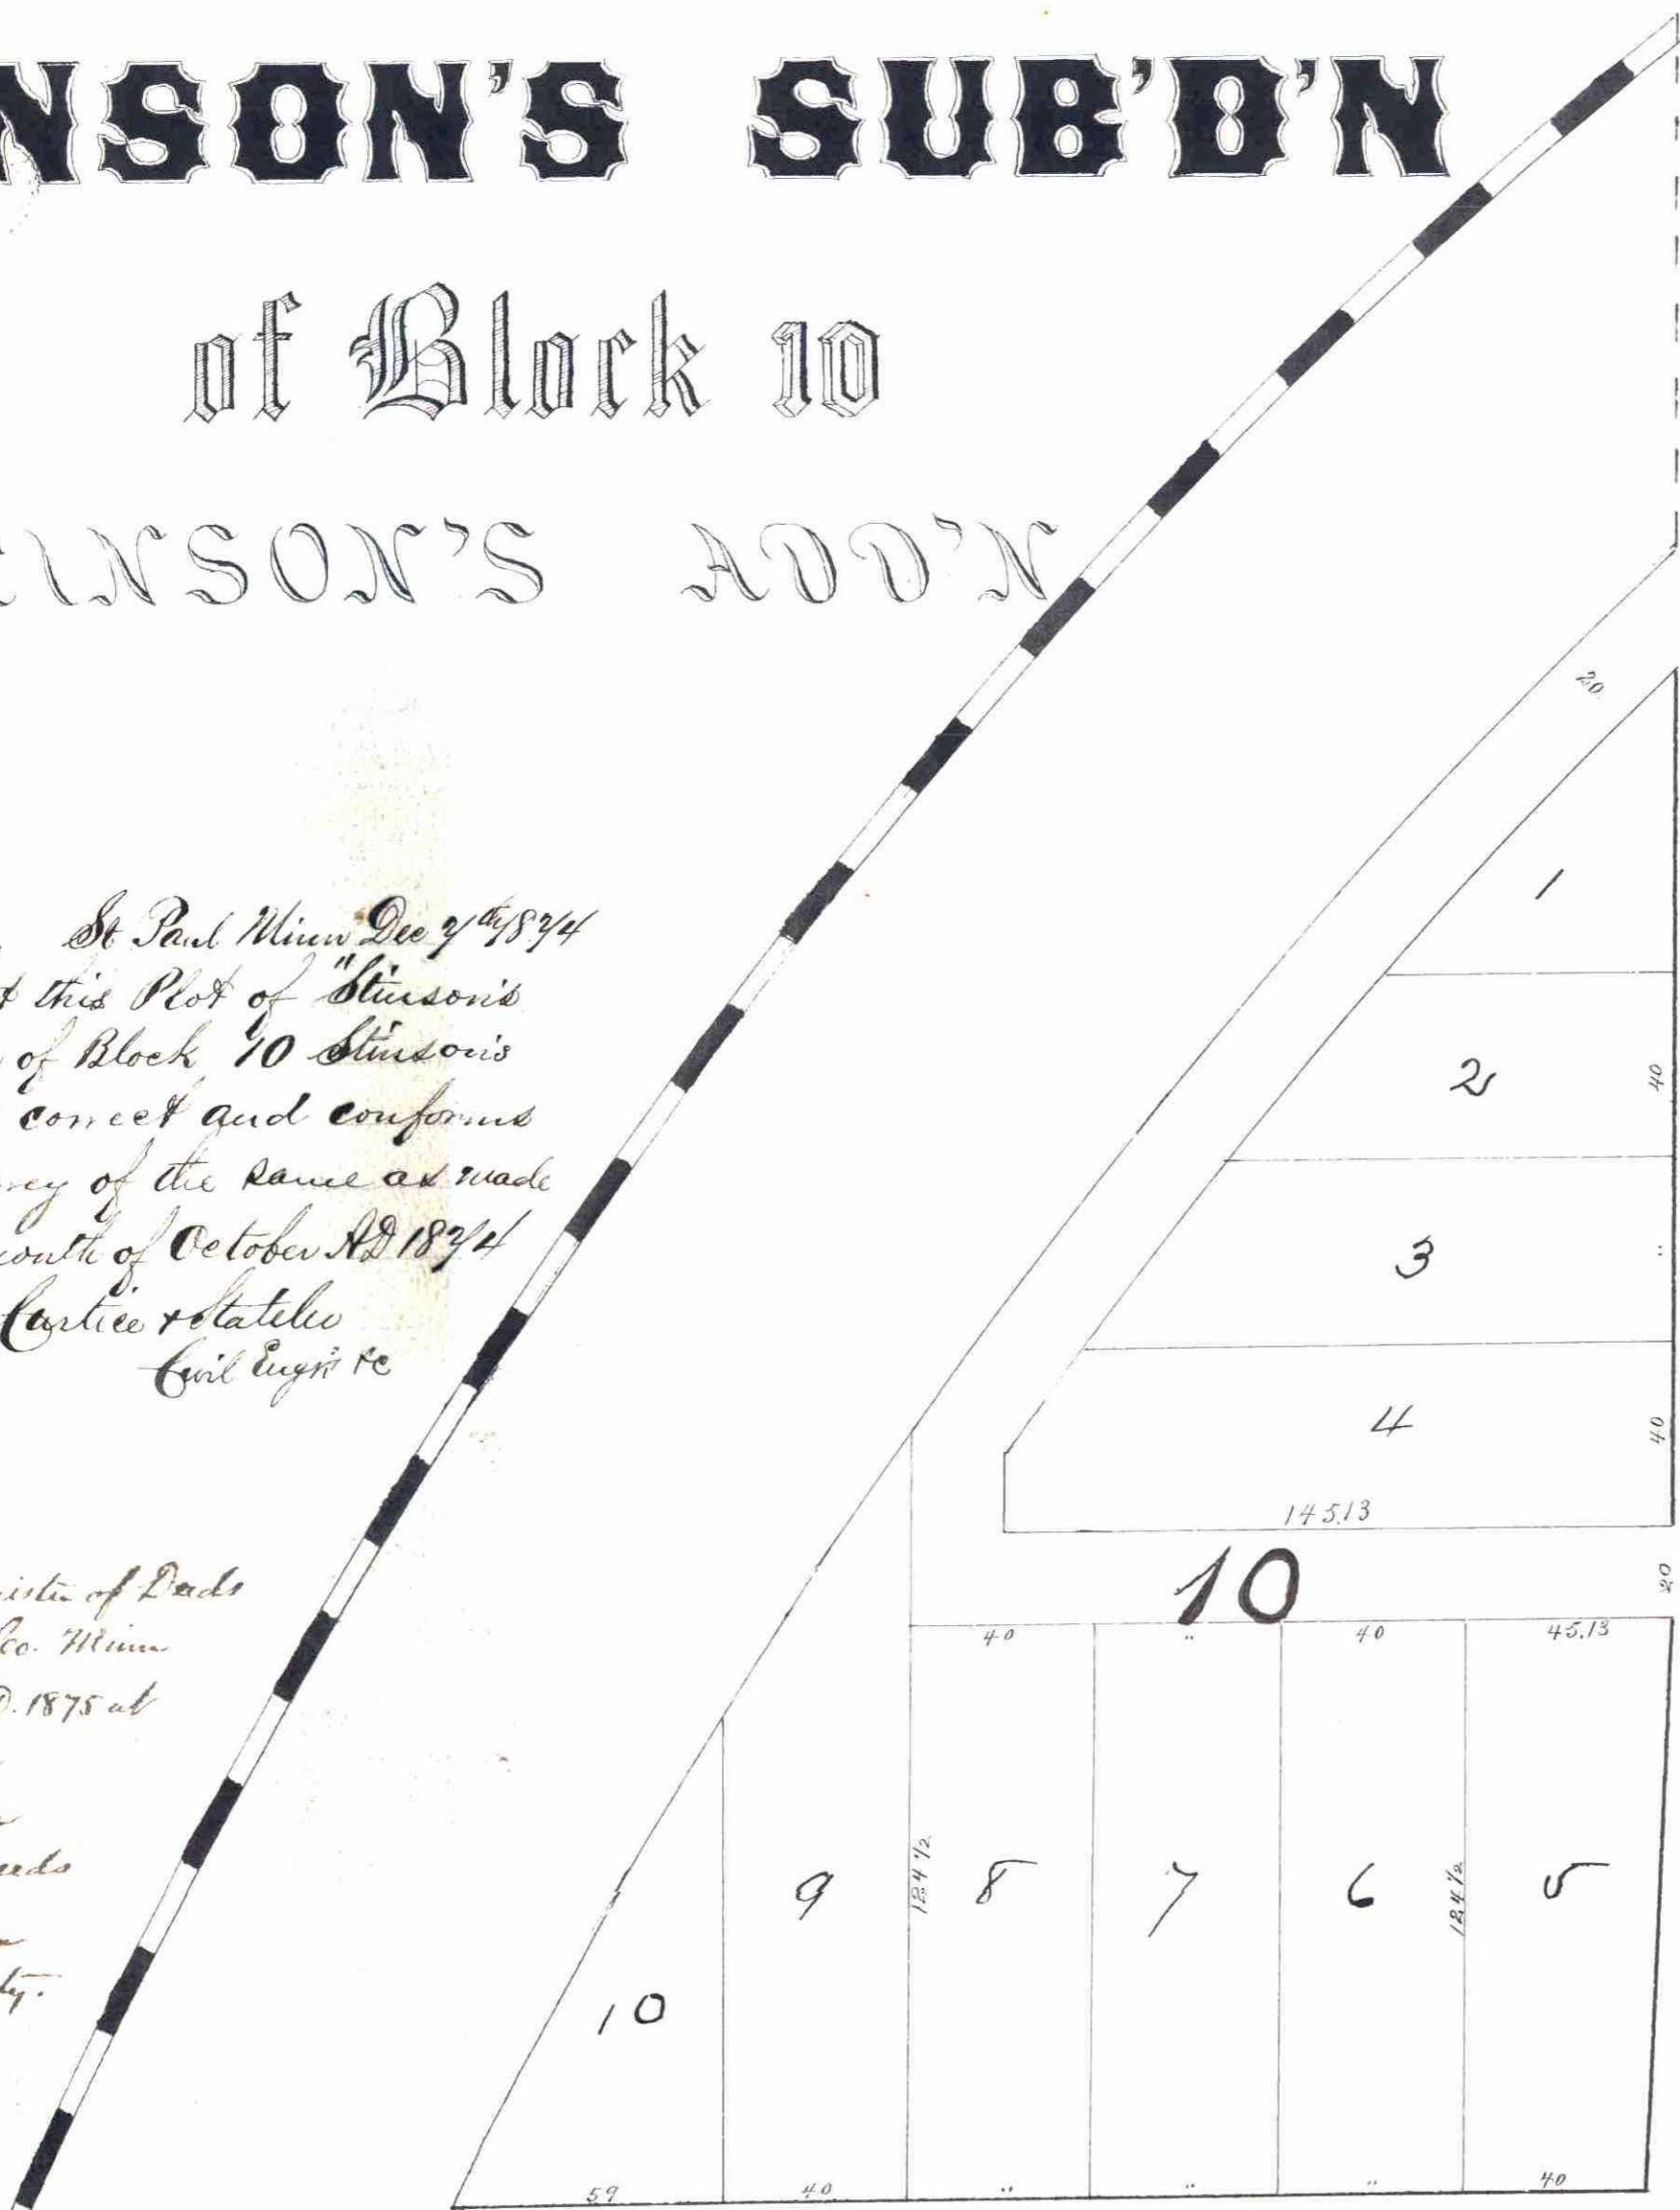 NSON'S SUB'D'N
of Block 10
INSON'S ADD'N
St Paul Minn Dec 7th 1874
this Plot of "Stinson's
of Block 10 Stinson's
correct and conforms
of the same as made
of October AD 1874
Civil Engrs &c
of Deeds
Co. Minn
D. 1875 at
20
1
2
40
3
"
4
40
145.13
10
20
40
"
40
45.13
124 1/2
124 1/2
10
9
8
7
6
5
59
40
"
"
"
40